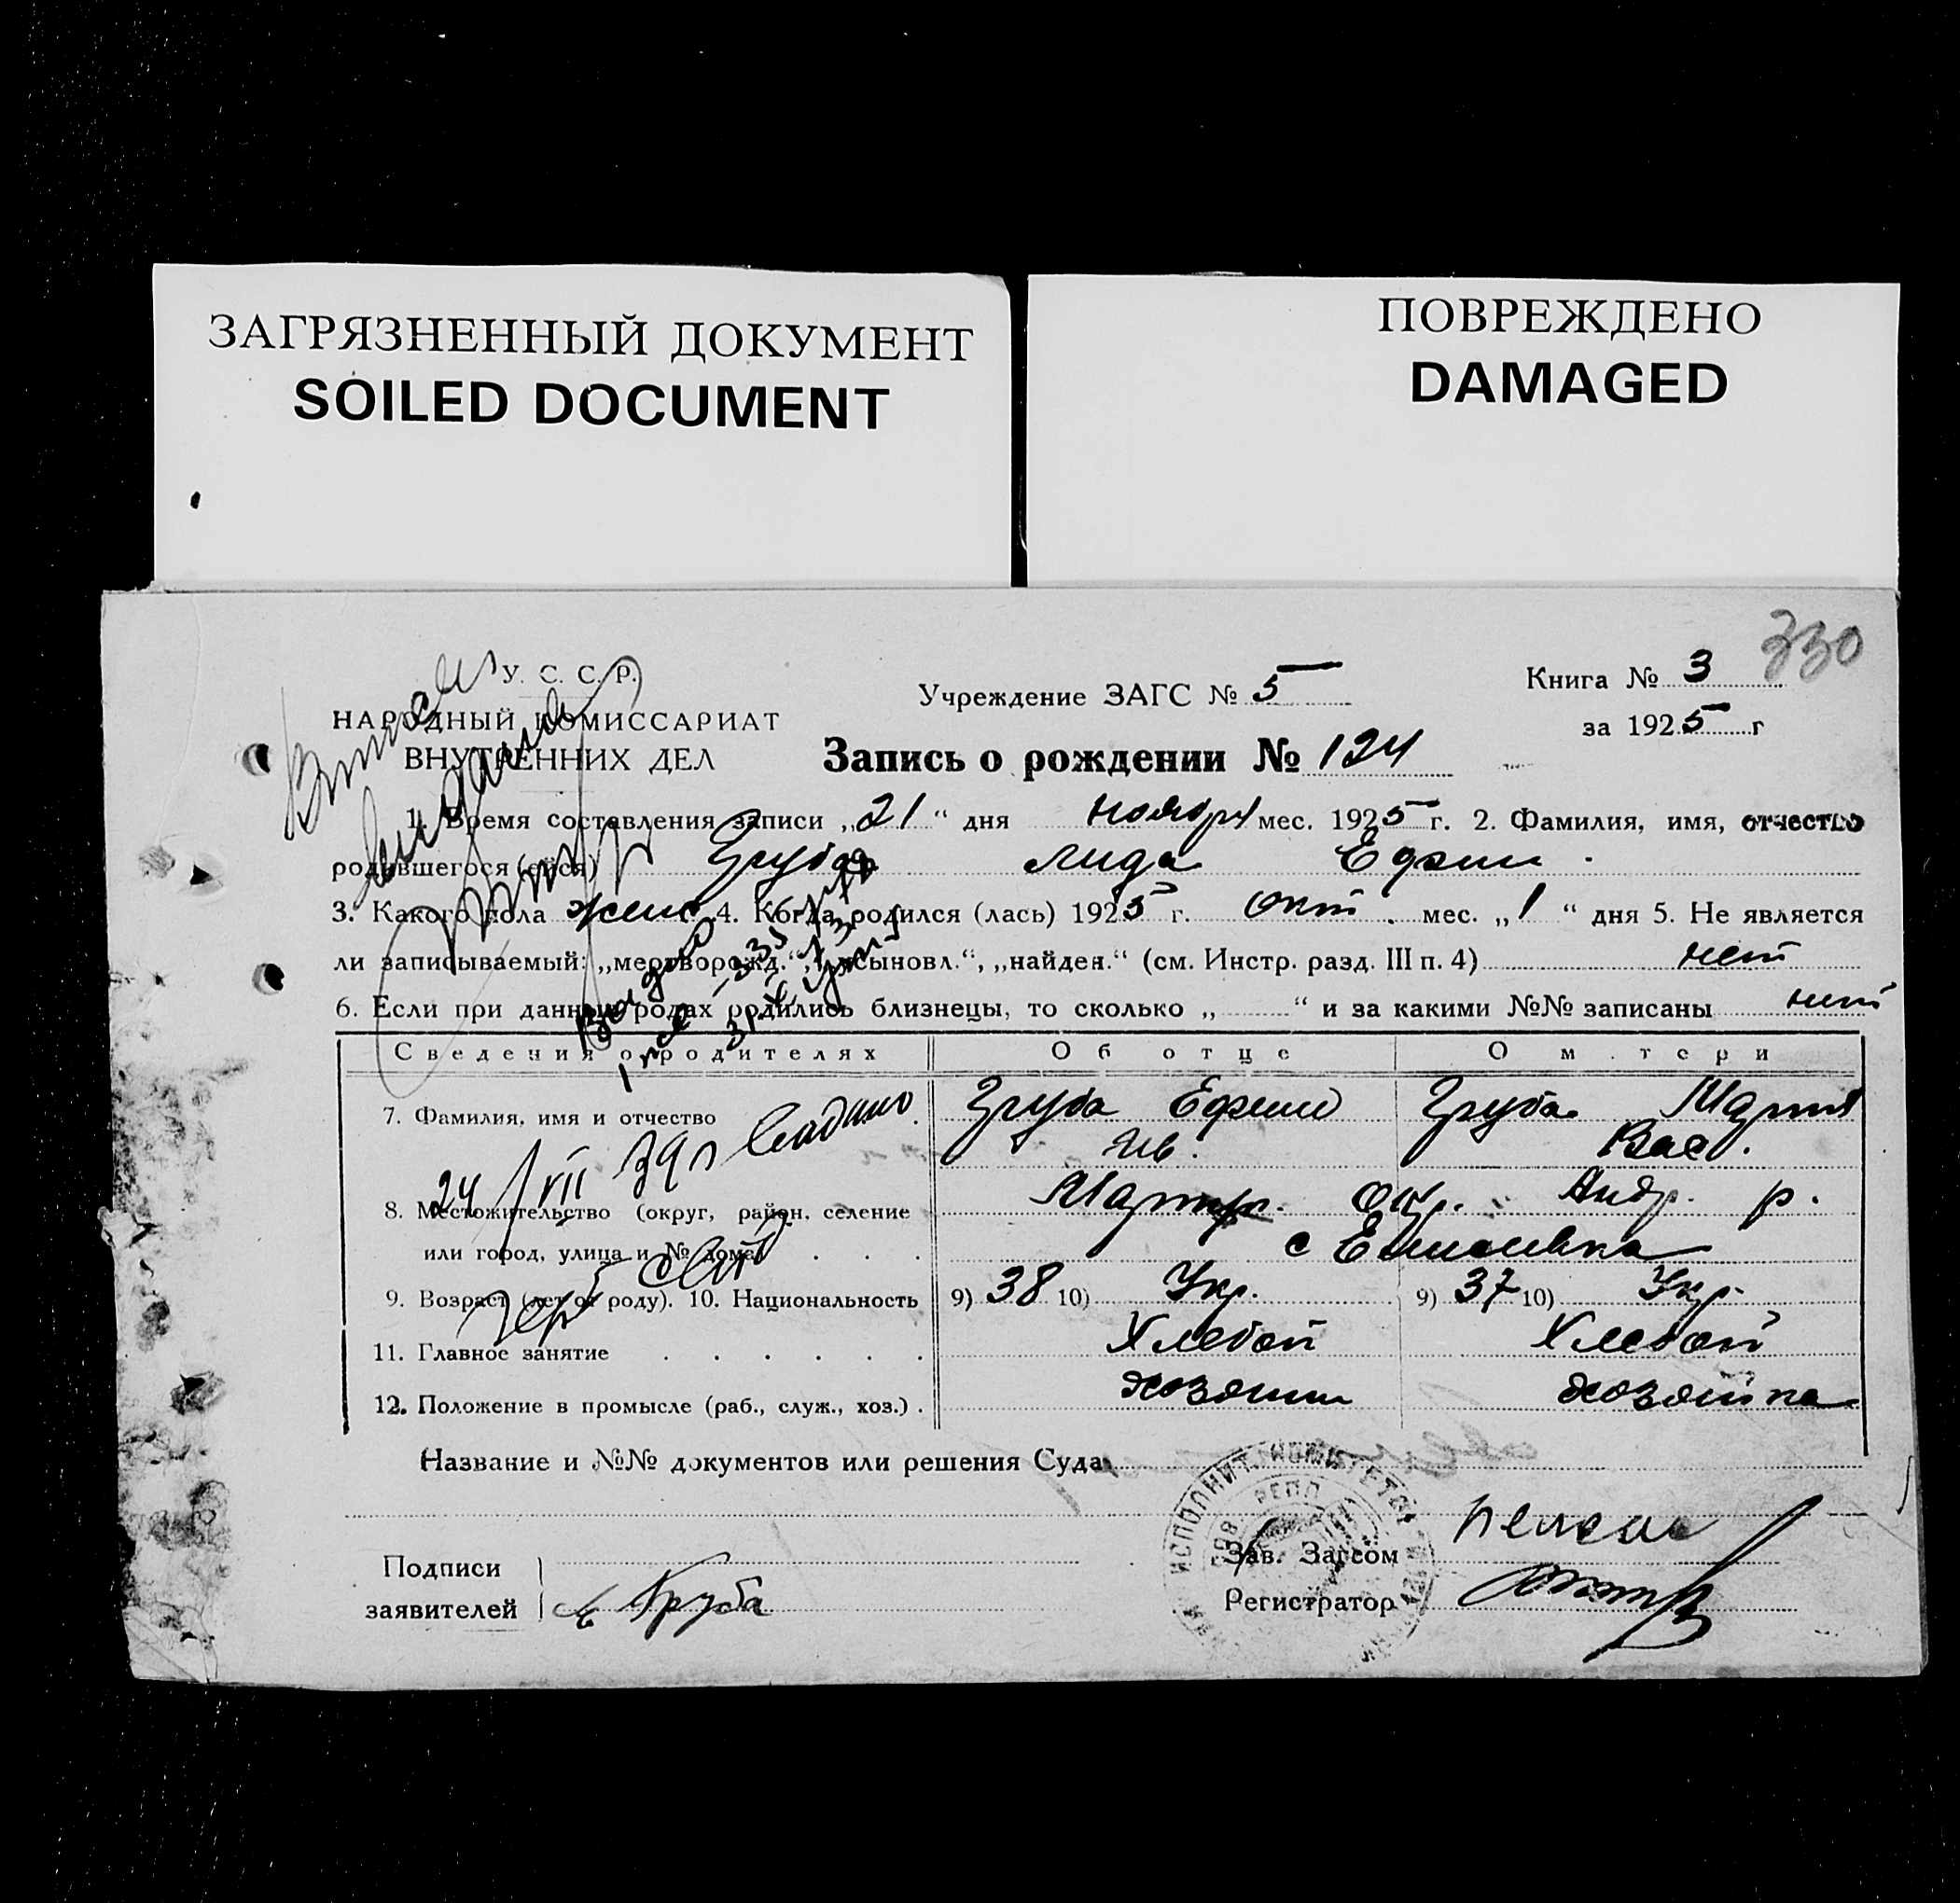 ЗАГРЯЗНЕННЫЙ ДОКУМЕНТ
SOILED DOCUMENT
ПОВРЕЖДЕНО
DAMAGED
330
У. С. С. Р.
НАРОДНЫЙ КОМИССАРИАТ
ВНУТРЕННИХ ДЕЛ
Учреждение ЗАГС № 5
Книга № 3
за 1925 г
Запись о рождении № 124
1. Время составления записи „21“ дня ноября мес. 1925 г. 2. Фамилия, имя, отчество
родившегося (ейся) Груба Лида Ефим.
3. Какого пола женс 4. Когда родился (лась) 1925 г. окт. мес. „1“ дня 5. Не является
ли записываемый: „мертворожд.“, „усыновл.“, „найден.“ (см. Инстр. разд. III п. 4) нет
6. Если при данных родах родились близнецы, то сколько „ “ и за какими №№ записаны нет
Сведения о родителях Об отце О матери
7. Фамилия, имя и отчество Груба Ефим Груба Мария
Ив. Вас.
24/VII 39
8. Местожительство (округ, район, селение Окр. Андр. р.
или город, улица и № дома) с
9. Возраст (лет от роду). 10. Национальность 9) 38 10) Укр. 9) 37 10) Укр.
11. Главное занятие Хлебоп Хлебоп
12. Положение в промысле (раб., служ., хоз.) хозяин хозяйка
Название и №№ документов или решения Суда
Подписи
заявителей Е Груба
Зав. Загсом
Регистратор